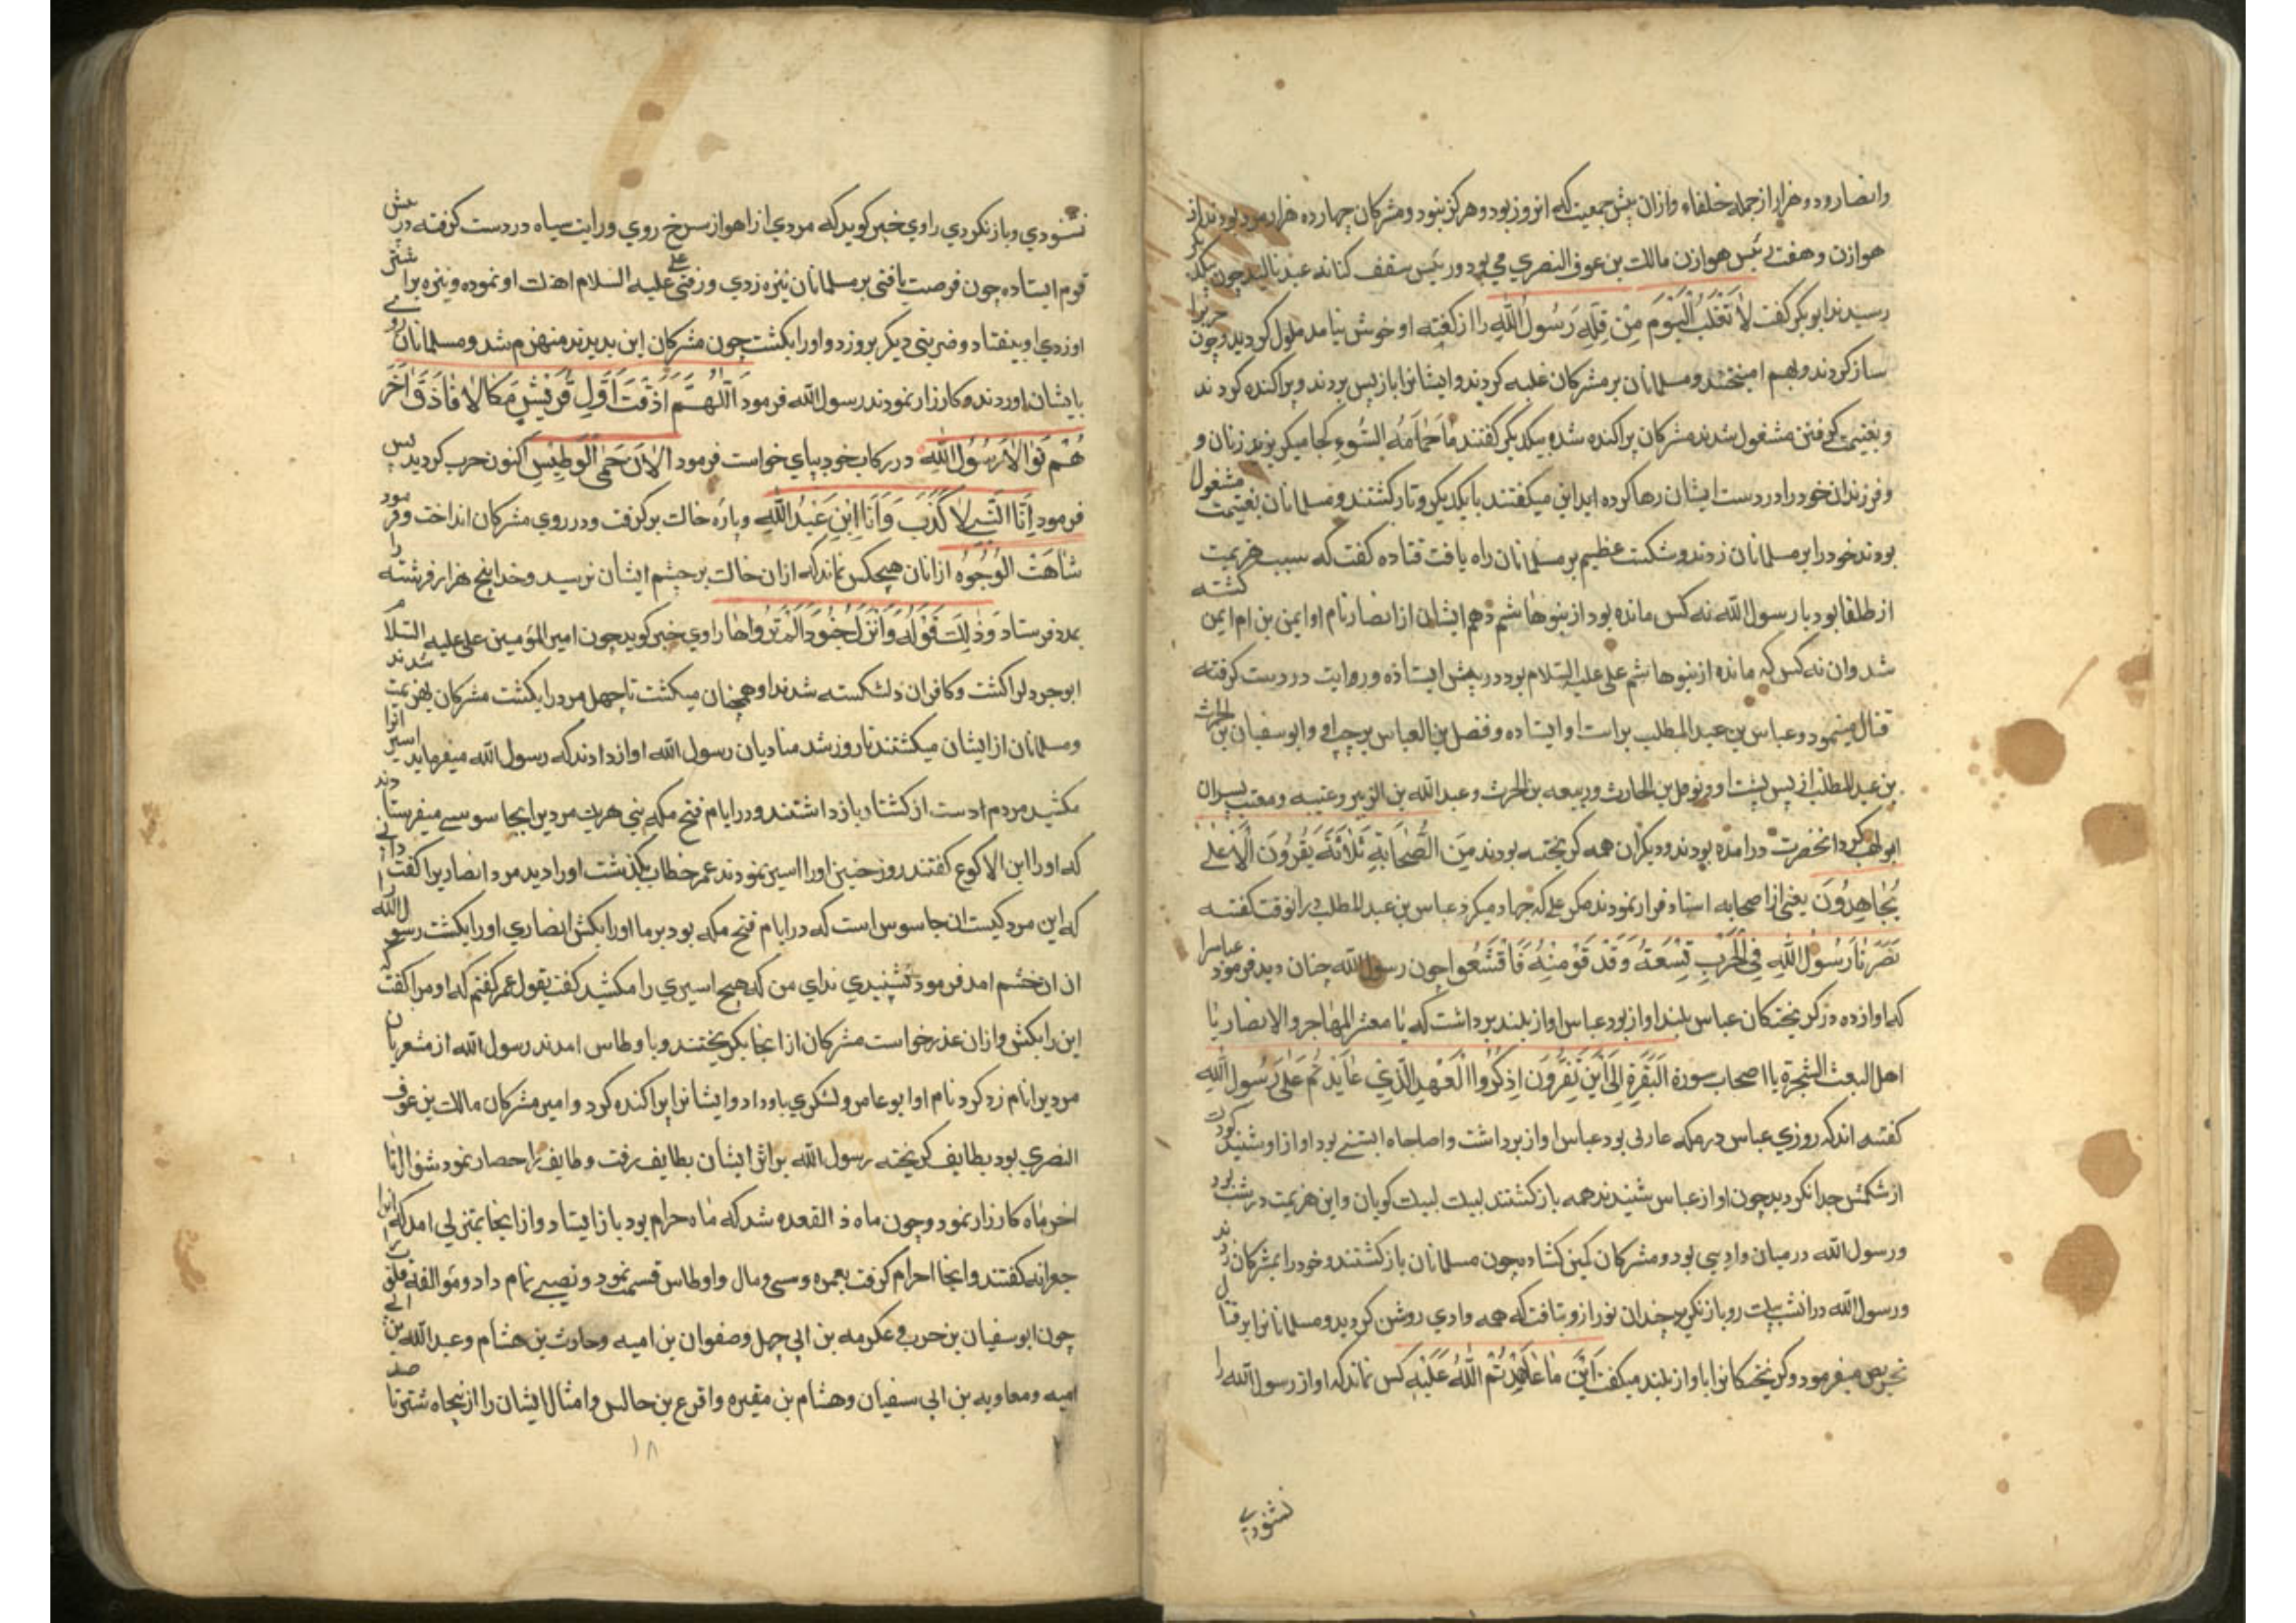 وانصار ودو هزار از جمله خلفاء وازان پیش جمعیت که انروز بود وهرکز نبود ومشرکان چهارده هزار مرد بودند از
هوازن و رئیس هوازن مالک بن عوف النصری می بود ورئیس سقف کنانه عبد یالیل چون بیکدیکر
رسیدند ابو بکر کفت لَا تَغْلَبُ الْیَوْمَ مِنْ قِلَّةٍ رَسُولُ اللّٰهِ را از کفته او خوش نیامد ملول کردید وچون حربرا
ساز کردند وبهم امیختند ومسلمانان بر مشرکان غلبه کردند وایشانرا باز پس بردند وپراکنده کردند
وبغنیمت کرفتن مشغول شدند مشرکان پراکنده شده بیکدیکر کفتند مَا حُمَامَةُ السُّوءِ کجا میکریزید زنان و
وفرزندان خود را در دست ایشان رها کرده اید این میکفتند با یکدیکر وتا رکشتند ومسلمانان بغنیمت مشغول
بودند خود را بر مسلمانان زدند وشکست عظیم بر مسلمانان راه یافت قتاده کفت که سبب هزیمت
از طلقا بود با رسول اللّه نه کس مانده بود از بنوهاشم دهم ایشان از انصار نام او ایمن بن ام ایمن کشته
شد وان نه کس که مانده از بنوهاشم علی علیه السّلام بود در پیش ایستاده وروایت در دست کرفته
قتال مینمود وعباس بن عبد المطلب براست او ایستاده وفضل بن العباس برچپ او وابو سفیان بن الحرث
بن عبد المطلب از پس پشت او ونوفل بن الحارث وربیعه بن الحرث وعبد اللّه بن الزبیر وعتبه ومعتب پسران
ابو لهب کرد انحضرت درامده بودند ودیکران همه کریخته بودند مِنَ الصَّحَابَةِ ثَلَاثَةَ یَقُرُونَ اِلَّا عَلی
یُجَاهِدُونَ یعنی از اصحابه استاد فرار نمودند مکر علی که جهاد میکرد عباس بن عبد المطلب درانوقت کفته
نَصَرْنَا رَسُولَ اللّٰهِ فِی الْحَرْبِ تِسْعَةٌ وَقَدْ فَاقْشَعُوا چون رسول اللّه چنان دید فرمود عباسرا
که اواز ده ذکر یختکان عباس بلند اواز بود عباس اواز بلند برداشت که یَا معشر المهاجر والانصار یَا
اهل البعث الشجرة یا اصحاب سورة البَقَرَةِ اِلٰی اَیْنَ تَفِرُّونَ اذْکُرُوا الْعَهْدَ الَّذِی عَلَی رَسُولِ اللّٰهِ
کفته اند که روزی عباس در مکه بود عباس اواز برداشت واصلحاه ابستنی بود اواز او شنید کودک
از شکمش جدا نکردید چون اواز عباس شنیدند همه باز کشتند لبیک لبیک کویان واین هزیمت در شب بود
ورسول اللّه در میان وادیی بود ومشرکان کمین کشاده چون مسلمانان باز کشتند وخود را بمشرکان زدند
ورسول اللّه دران شب روباز نکرید چندان نور از و بتافت که همه وادی روشن کردید ومسلمانانرا بر قتال
تحریص میفرمود وکریختکانرا باواز بلند میکفت اَیْنَ مَا عَاهَدْتُمُ اللّٰهُ عَلَیْهِ کس نماند که اواز رسول اللّه را
نشنودی
نشنودی وباز نکردی راوی خبر کوید که مردی از اهواز سرخ روی ورایت سیاه در دست کرفته در پیش
قوم ایستاده چون فرصت یافتی بر مسلمانان نیزه زدی ورفتی علی علیه السّلام اهنک او نمود وبنزه بر اشتر
او زدی او بیفتاد وضربتی دیکر بروزد واورا بکشت چون مشرکان این بدیدند منهزم شد ومسلمانان روی
بایشان اوردند وکارزار نمودند رسول اللّه فرمود اَللّٰهُمَّ اَذَقْتَ اَوَّلِ قُرَیْشٍ مَکَالًا فَاَذَقَ اٰخَرَ
هُمْ نَوَالًا رَسُولُ اللّٰه در رکاب خود بپای خواست فرمود الْاٰنَ حَمِیَ الْوَطِیْس اکنون حرب کردید پس
فرمود اَنَا النَّبِی لَا کَذِبَ وَاَنَا ابْنِ عَبْدِ اللّٰه وپاره خاک برکرفت ودر روی مشرکان انداخت وفرمود
شَاهَتْ الْوُجُوْه ازانان هیچکس نماند که ازان خاک بر چشم ایشان نرسید وخدا پنج هزار فرشته را
بمدد فرستاد وَذٰلِکَ قَوْلُهُ وَاَنْزَلَ جُنُودًا لَمْ تَرَوْاهَا راوی خبر کوید چون امیر المؤمنین علی علیه السّلام
ابوجردلرا کشت وکافران دلشکسته شدند او همچنان میکشت تا چهل مرد را بکشت مشرکان بهزیمت شدند
ومسلمانان از ایشان میکشتند تا روز شد منادیان رسول اللّه اواز دادند که رسول اللّه میفرماید اسیرانرا
مکشید مردم دست از کشتار باز داشتند ودر ایام فتح مکه بنی هریت مردیرا بجاسوسی میفرستادند
که اورا ابن الاکوع کفتند روز حنین اورا اسیر نمودند عمر خطاب بکذشت اورا دید مرد انصاریرا کفت
که این مرد کیست ان جاسوس است که در ایام فتح مکه بود بر ما اورا بکش انصاری اورا بکشت رسول اللّه
ازان خشم امد فرمود نشنیدی ندای من که هیچ اسیری را مکشید کفت بقول عمر کفتم که او مرا کفت که
این را بکش وازان عذر خواست مشرکان از انجا بکریختند وباوطاس امدند رسول اللّه از مشعریان
مردیرا نام زد کرد نام او ابو عامر ولشکری باو داد وایشانرا پراکنده کرد وامیر مشرکان مالک بن عوف
النصری بود بطایف کریخته رسول اللّه بر اثر ایشان بطایف رفت وطایف را حصار نمود شوال تا
اخر ماه کارزار نمود وچون ماه ذالقعده شد که ماه حرام بود باز ایستاد وازانجا بمنزلی امد که انرا
جعرانه کفتند وانجا احرام کرفت بعمره وسبی ومال واوطاس قسمت نمود ونصیبی تمام داد ومؤالفة قلوب را
چون ابو سفیان بن حرب وعکرمه بن ابی جهل وصفوان بن امیه وحارث بن هشام وعبد اللّه بن ابی
امیه ومعاویه بن ابی سفیان وهشام بن مغیره واقرع بن حابس وامثال ایشان را از پنجاه شتر تا صد
۱۸